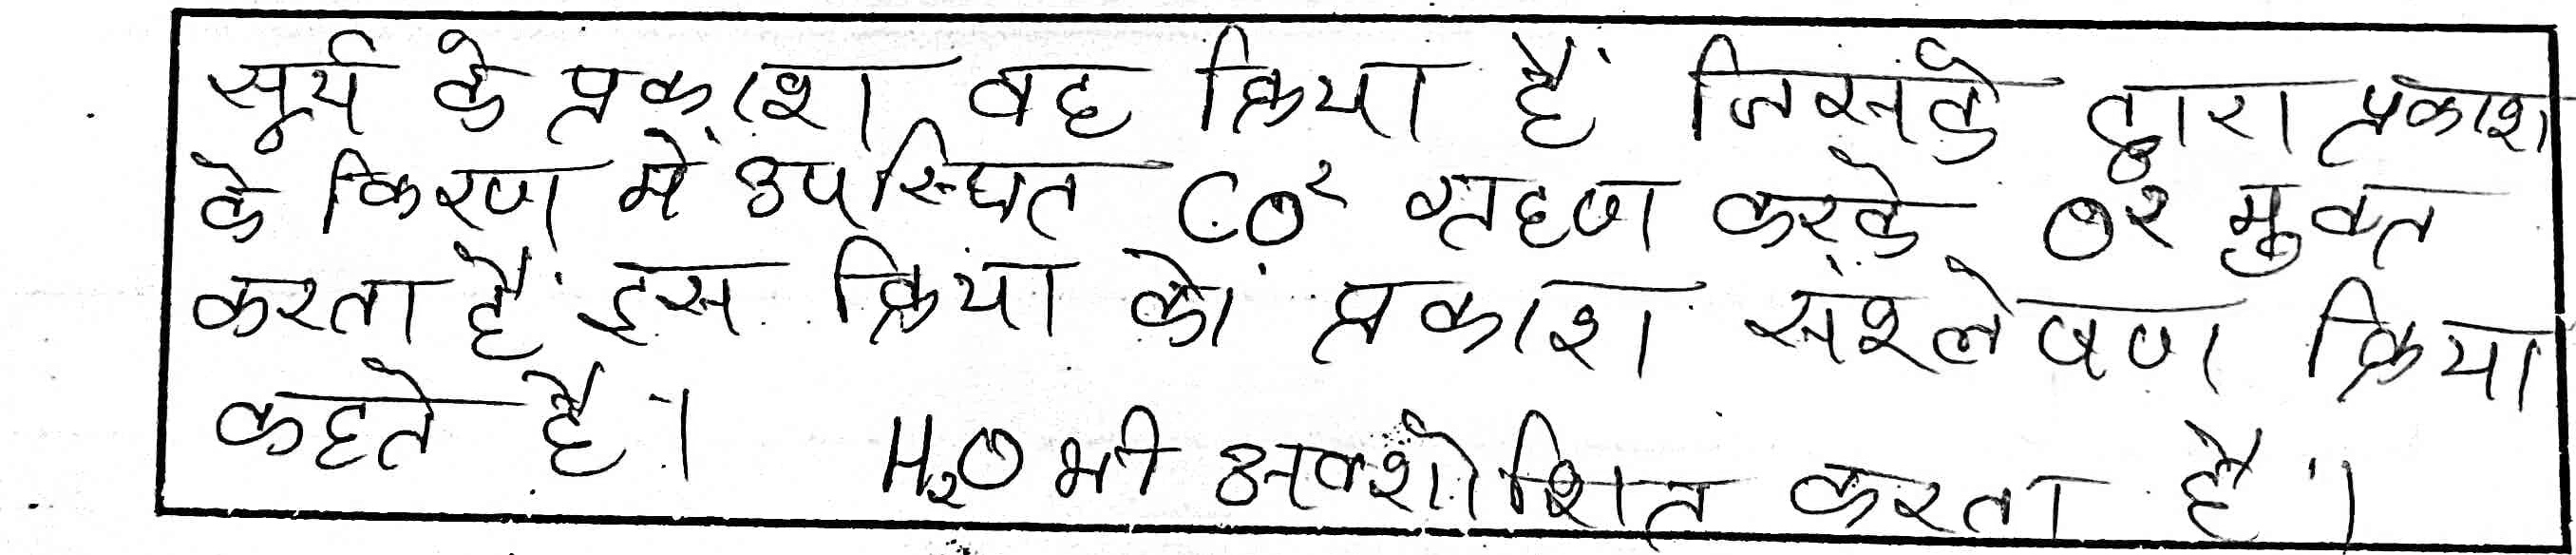 सूर्य के प्रकाश वह क्रिया है जिसके द्वारा प्रकाश
के किरण में उपस्थित CO² ग्रहण करके O२ मुक्त
करता है इस क्रिया को प्रकाश संश्लेषण क्रिया
कहते है। H₂O भी अवशोशित करता है।